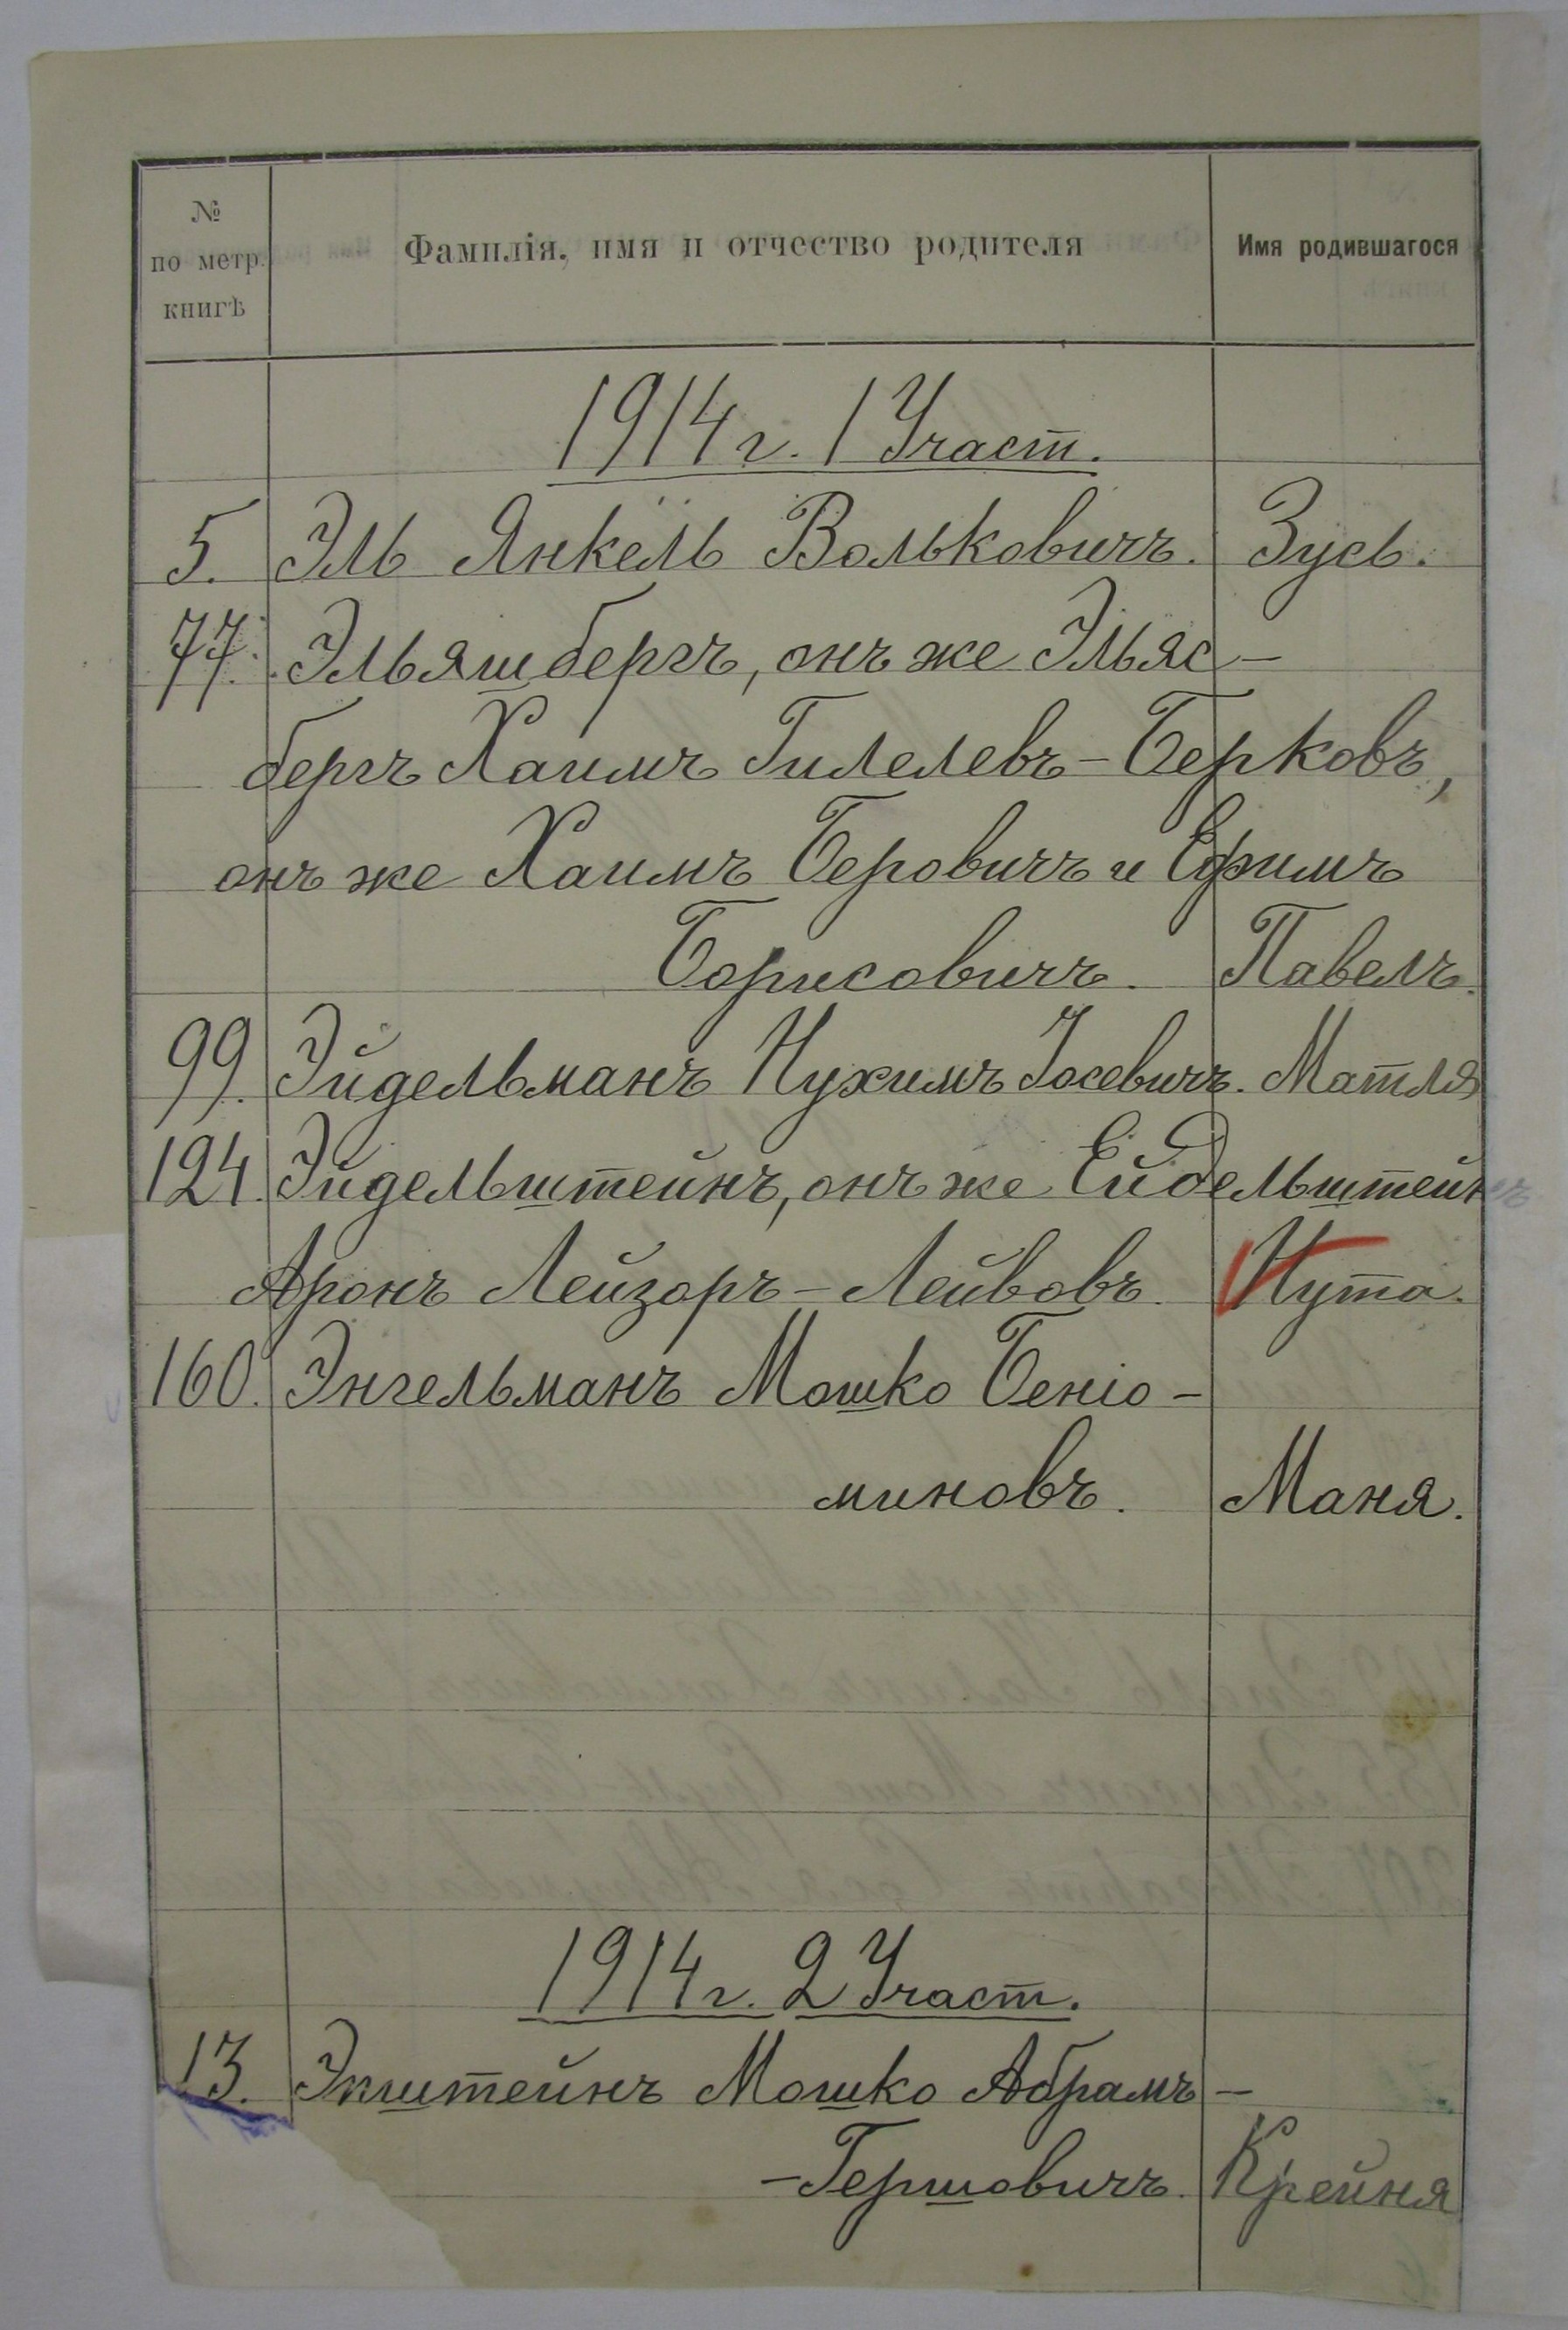 № по метр. книгѣ
Фамилія, имя и отчество родителя
Имя родившагося
1914 г. 1 Участ.
5. Эль Янкель Вольковичъ. Зусь.
77. Эльяшбергъ, онъ же Эльяс-
бергъ Хаимъ Гилелевъ-Берковъ,
онъ же Хаимъ Беровичъ и Ефимъ
Борисовичъ. Павелъ.
99. Эйдельманъ Нухимъ Іосевичъ. Матля
124. Эйдельштейнъ, онъ же Ейдельштейнъ
Аронъ Лейзоръ-Лейвовъ. Нута.
160. Энгельманъ Мошко Беніо-
миновъ. Маня.
1914 г. 2 Участ.
13. Экштейнъ Мошко Абрамъ-
-Гершовичъ. Крейня